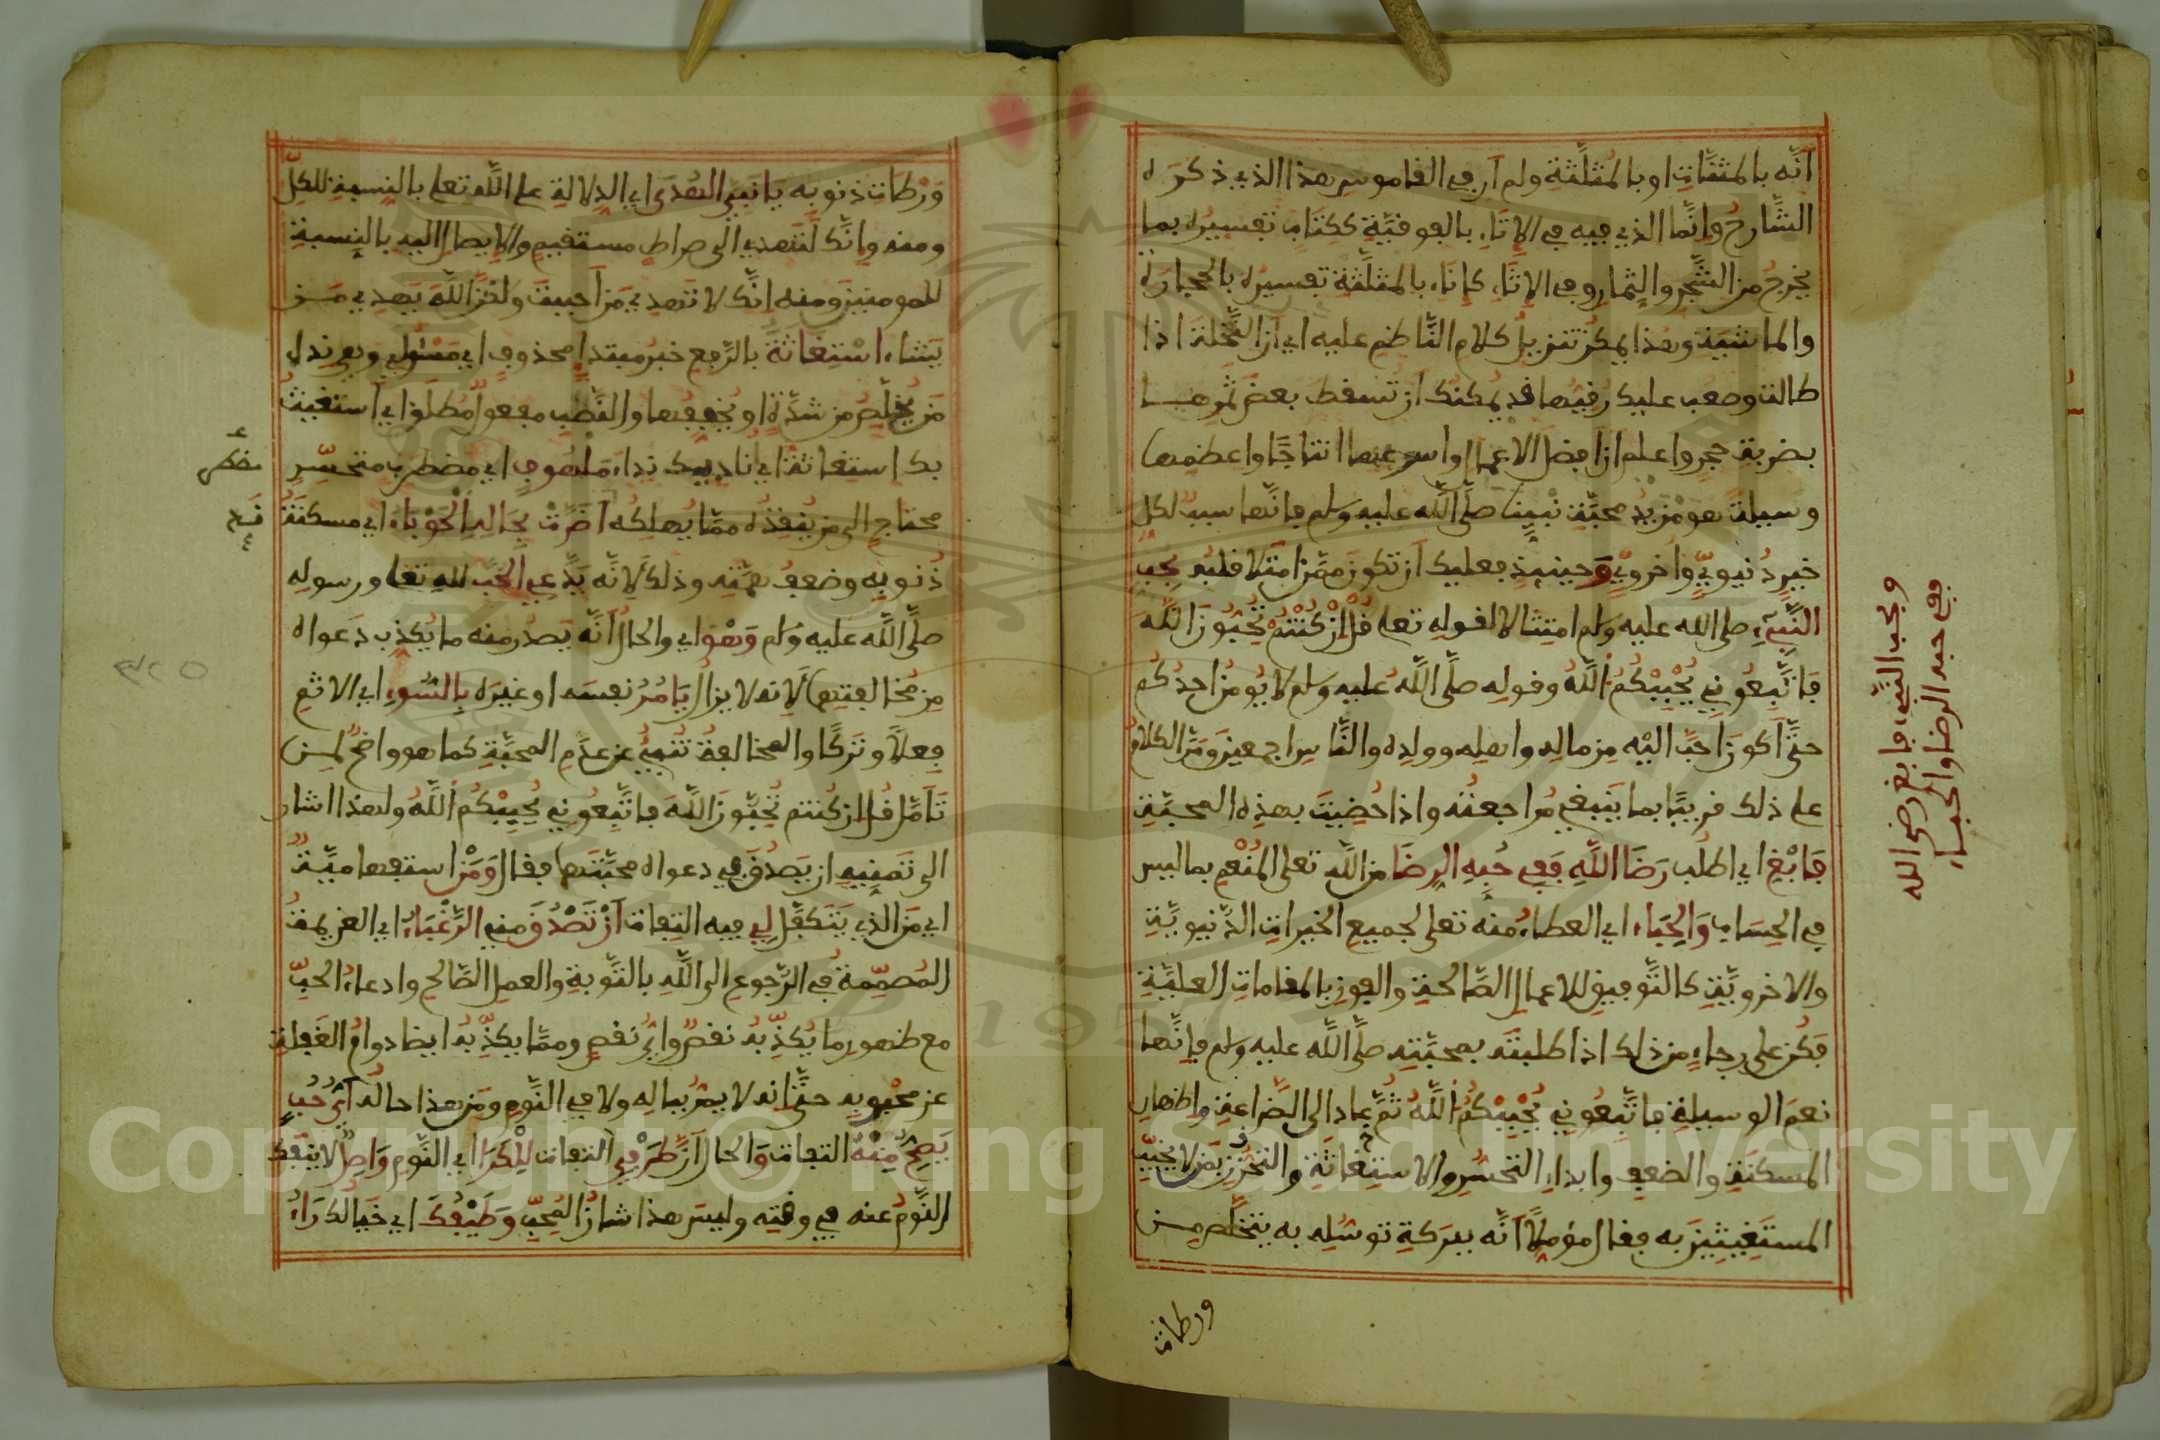 أنّه بالمثنّات او بالمثلّثة ولم أر في القاموس هذا الذي ذكره
الشّارح وإنّما الذي فيه في الإتاء بالفوقيّة ككتاب تفسيره بما
يخرج من الشّجر والثمار وفي الاثاء كإناء بالمثلّثة تفسيره بالحجارة
والماشية وهذا يمكن تنزيل كلام النّاظم عليه اي أن النّخلة اذا
طالت وصعب عليك رقيّها قد يمكنك أن تسقط بعض ثمرها
بضربة حجر واعلم ان افضل الاعمال واسرعها انتاجًا واعظمها
وسيلة هو مزيد محبّة نبيّنا صلّى اللّه عليه وسلم فإنّها سبب لكل
خير دنيويّ واخرويّ وحينئذ فعليك أن تكون ممّن امتلا قلبه بحبّ
النّبيّ صلى الله عليه وسلم امتثالا لقوله تعلى قل إن كنتم تحبّون اللّه
فاتّبعوني يحببكم اللّه وقوله صلّى اللّه عليه وسلم لا يؤمن احدكم
حتّى أكون احبّ اليه من ماله واهله وولده والنّاس اجمعين ومرّ الكلام
على ذلك قريبًا بما ينبغي مراجعته واذا حضيت بهذه المحبّة
فابغ اي اطلب رضا اللّه ففي حبه الرضا من اللّه تعلى المنعم بما ليس
في الحساب والحباء اي العطاء منه تعلى لجميع الخيرات الدّنيويّة
والاخرويّة كالتّوفيق للاعمال الصّالحة والفوز بالمقامات العليّة
فكن على رجاء من ذلك اذا طلبته بمحبّته صلّى اللّه عليه وسلم فإنّها
نعم الوسيلة فاتّبعوني يحببكم اللّه ثمّ عاد الى الضّراعة واظهار
المسكنة والضعف وابداء التحسّر والاستغاثة والتحزن بمن لا يخيّب
المستغيثين به فقال مؤمّلًا أنّه ببركة توسّله به يتخلّص من
ورطات
ويحب النبيء فابغ رضى الله
ففي حبه الرضا والحباء
ورطات ذنوبه يا نبيّ الهدى اي الدلالة على اللّه تعلى بالنسبة للكلّ
ومنه وإنّك لتهدي الى صراط مستقيم والإيصال اليه بالنسبة
للمومنين ومنه انّك لا تهدي من أحببت ولكنّ اللّه يهدي من
يشاء استغاثة بالرّفع خبر مبتدا محذوف اي مسئولي وهي نداء
من يخلّص من شدّة او يخفّفها والنّصب مفعول مطلق اي أستغيث
بك استغاثة اي نادیك نداء ملهوف اي مضطرب متحسّر
محتاج الى من ينقذه ممّا يهلكه أضرّت بحاله الحوباء اي مسكنة
ذنوبه وضعف همّته وذلك لأنّه يدّعي الحبّ لله تعلى ورسوله
صلّى اللّه عليه وسلم وهو اي والحال أنّه يصدر منه ما يكذب دعواه
من مخالفته لأنه لا يزال يامر نفسه او غيره بالسّوء اي الاثم
فعلًا وتركًا والمخالفة تنبئ عن عدم المحبّة كما هو واضح لمن
تأمّل قل ان كنتم تحبّون اللّه فاتّبعوني يحببكم اللّه ولهذا اشار
الى تمنّيه ان يصدق في دعواه محبّتها فقال ومن استفهاميّة
اي من الذي يتكفّل لي فيه التفات أن تصدق منه الرّغباء اي العزيمة
المصمّمة في الرّجوع الى اللّه بالتّوبة والعمل الصّالح وادعاء الحبّ
مع ظهور ما يكذّبه نقص وايّ نقص وممّا يكذّبه ايضا دوام الغفلة
عن محبوبه حتّى انه لا يمرّ بباله ولا في النّوم ومن هذا حاله أيّ حبّ
يصحّ منه التفات والحال أنّ طرفي التفات للكرا اي النّوم واصل لا ينفك
النّوم عنه في وقته وليس هذا شان المحبّ وطيفك اي خيالك راء